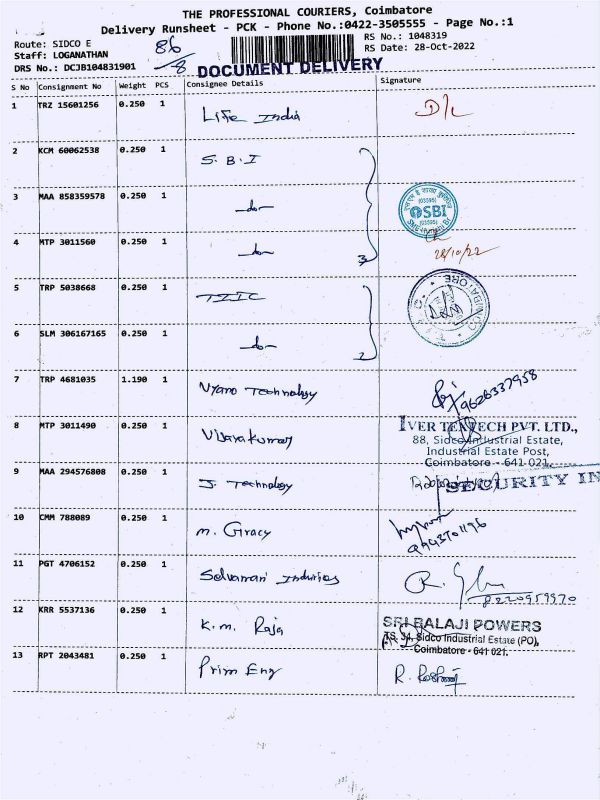 THE PROFESSIONAL COURIERS, Coimbatore
Delivery Runsheet - PCK - Phone No.:0422-3505555 - Page No.:1
Route: SIDCO E
Staff: LOGANATHAN
DRS No.: DCJB104831901
86/8
RS No.: 1048319
RS Date: 28-Oct-2022
DOCUMENT DELIVERY
S No Consignment No Weight PCS Consignee Details Signature
1 TRZ 15601256 0.250 1 Life India D/c
2 KCM 60062538 0.250 1 S.B.I
3 MAA 858359578 0.250 1 -do-
SBI
4 MTP 3011560 0.250 1 -do- 3
28/10/22
5 TRP 5038668 0.250 1 TIIC
COIMBATORE
6 SLM 306167165 0.250 1 -do- 2
7 TRP 4681035 1.190 1 Nyano Technology
9626337958
8 MTP 3011490 0.250 1 Vijayakumar
IVER TEKTECH PVT. LTD.,
88, Sidco Industrial Estate,
Industrial Estate Post,
Coimbatore - 641 021.
9 MAA 294576808 0.250 1 J. Technology
SECURITY IN
10 CMM 788089 0.250 1 M. Gracy
11 PGT 4706152 0.250 1 Selvamani Indurias
8220959970
12 KRR 5537136 0.250 1 K.M. Raja
SRI BALAJI POWERS
TS, 34, Sidco Industrial Estate (PO),
Coimbatore - 641 021.
13 RPT 2043481 0.250 1 Prim Eng